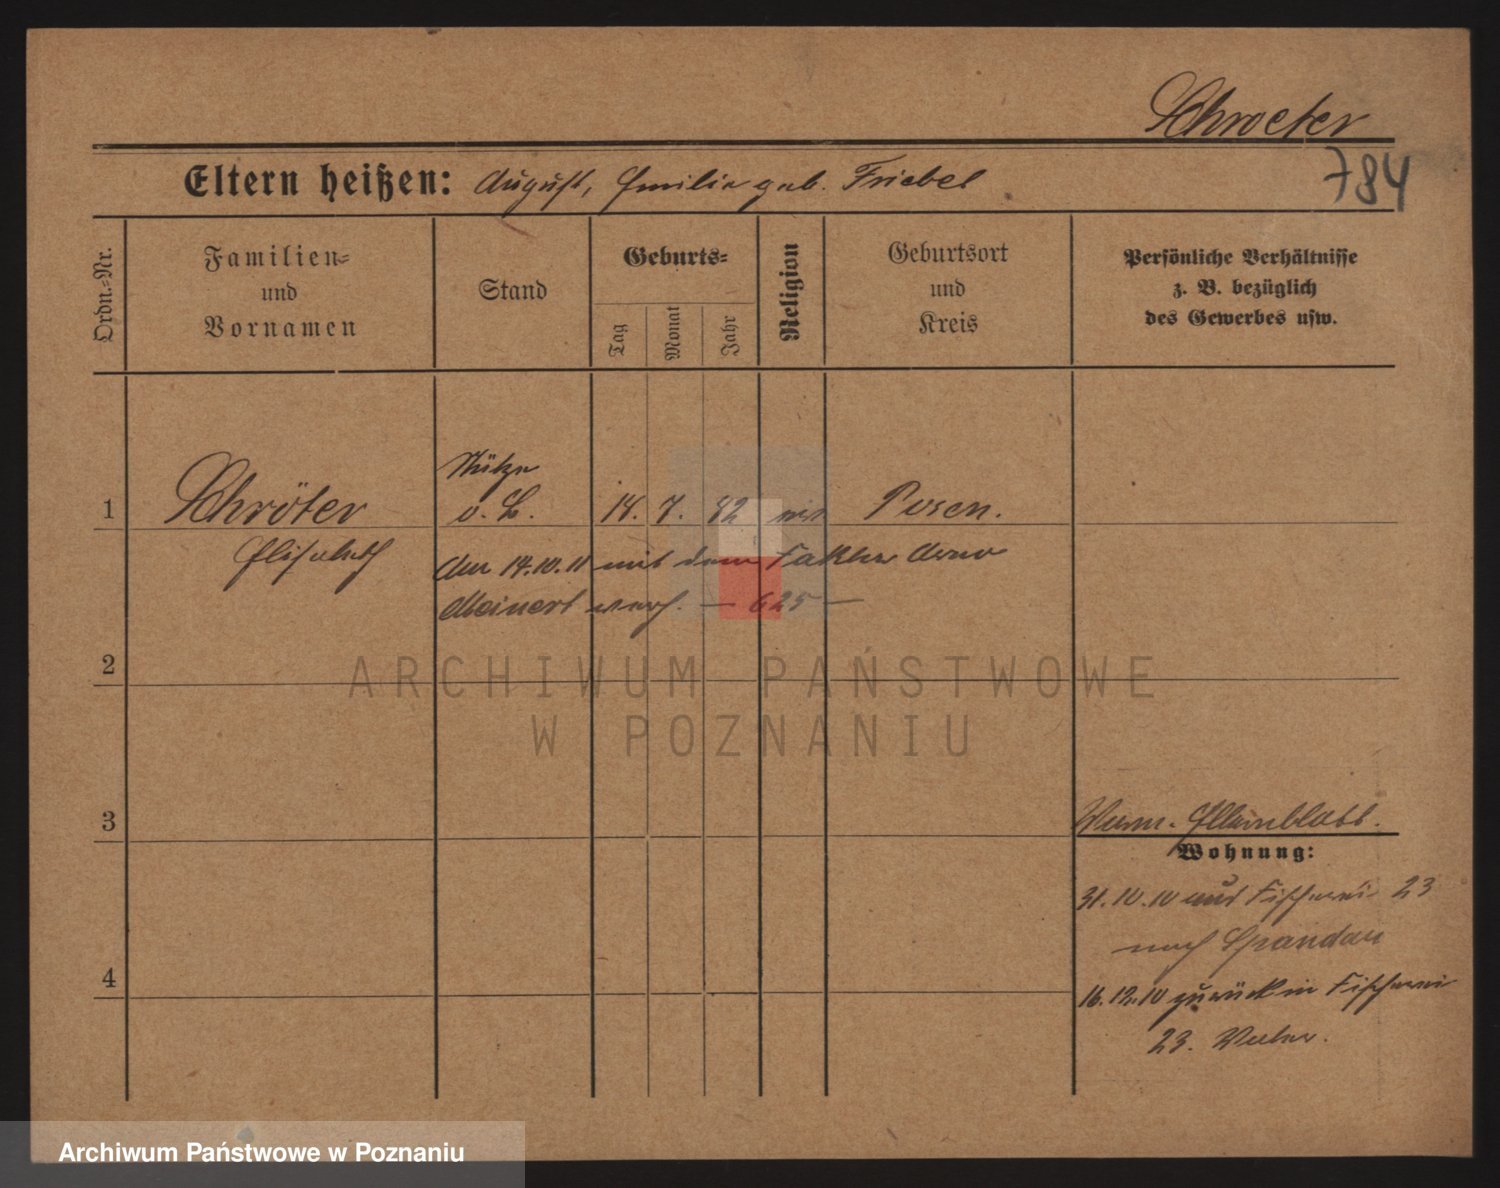 Schroeter
784
Eltern heißen: August, Emilie geb. Friebel
Ordn.-Nr.
Familien-
und
Vornamen
Stand
Geburts-
Tag
Monat
Jahr
Religion
Geburtsort
und
Kreis
Persönliche Verhältnisse
z. B. bezüglich
des Gewerbes usw.
1
Schröter
Elisabeth
Stütze
o. B.
14. 7. 82
Posen.
Am 14.10.11 mit dem Arno
Meinert verh. — 625 —
2
ARCHIWUM PAŃSTWOWE
W POZNANIU
3
Elternblatt.
Wohnung:
31.10.10 aus Fischerei 23
nach Spandau
4
16.12.10 zurück in Fischerei
23.
Archiwum Państwowe w Poznaniu